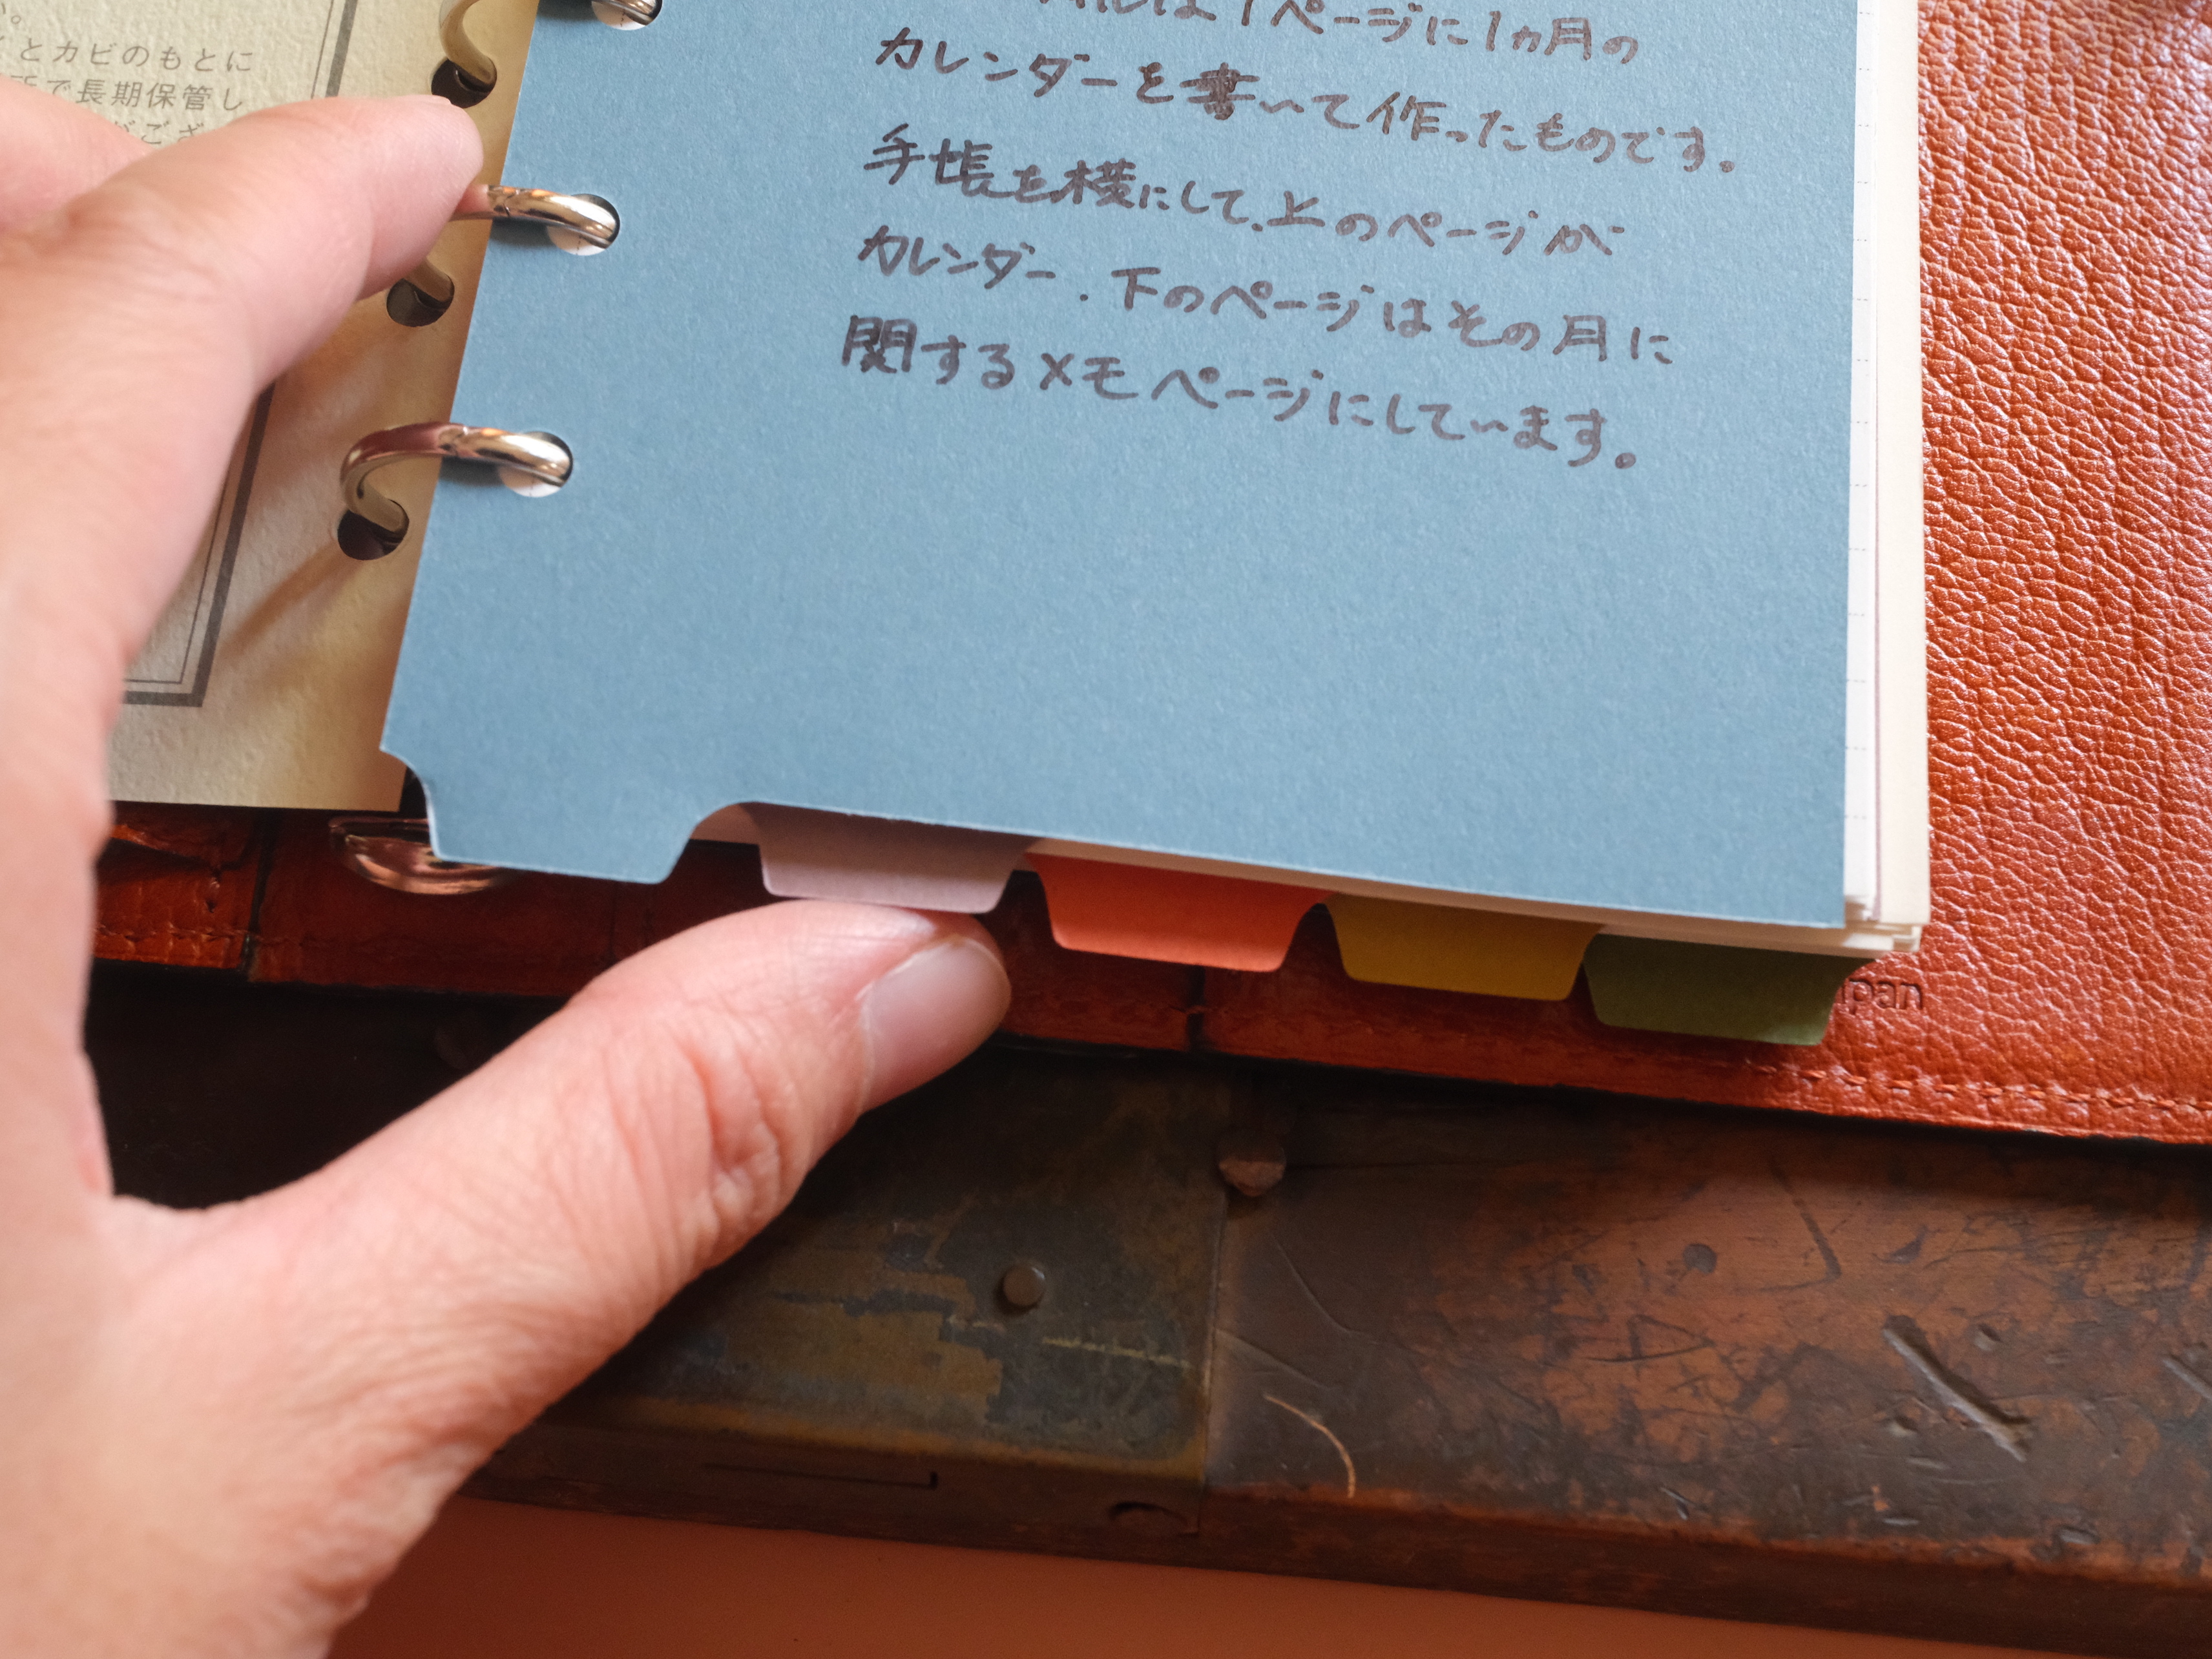 とカビのもとに
で長期保管し
ござ
は1ページに1ヵ月の
カレンダーを書いて作ったものです。
手帳を横にして、上のページが
カレンダー、下のページはその月に
関するメモページにしています。
pan